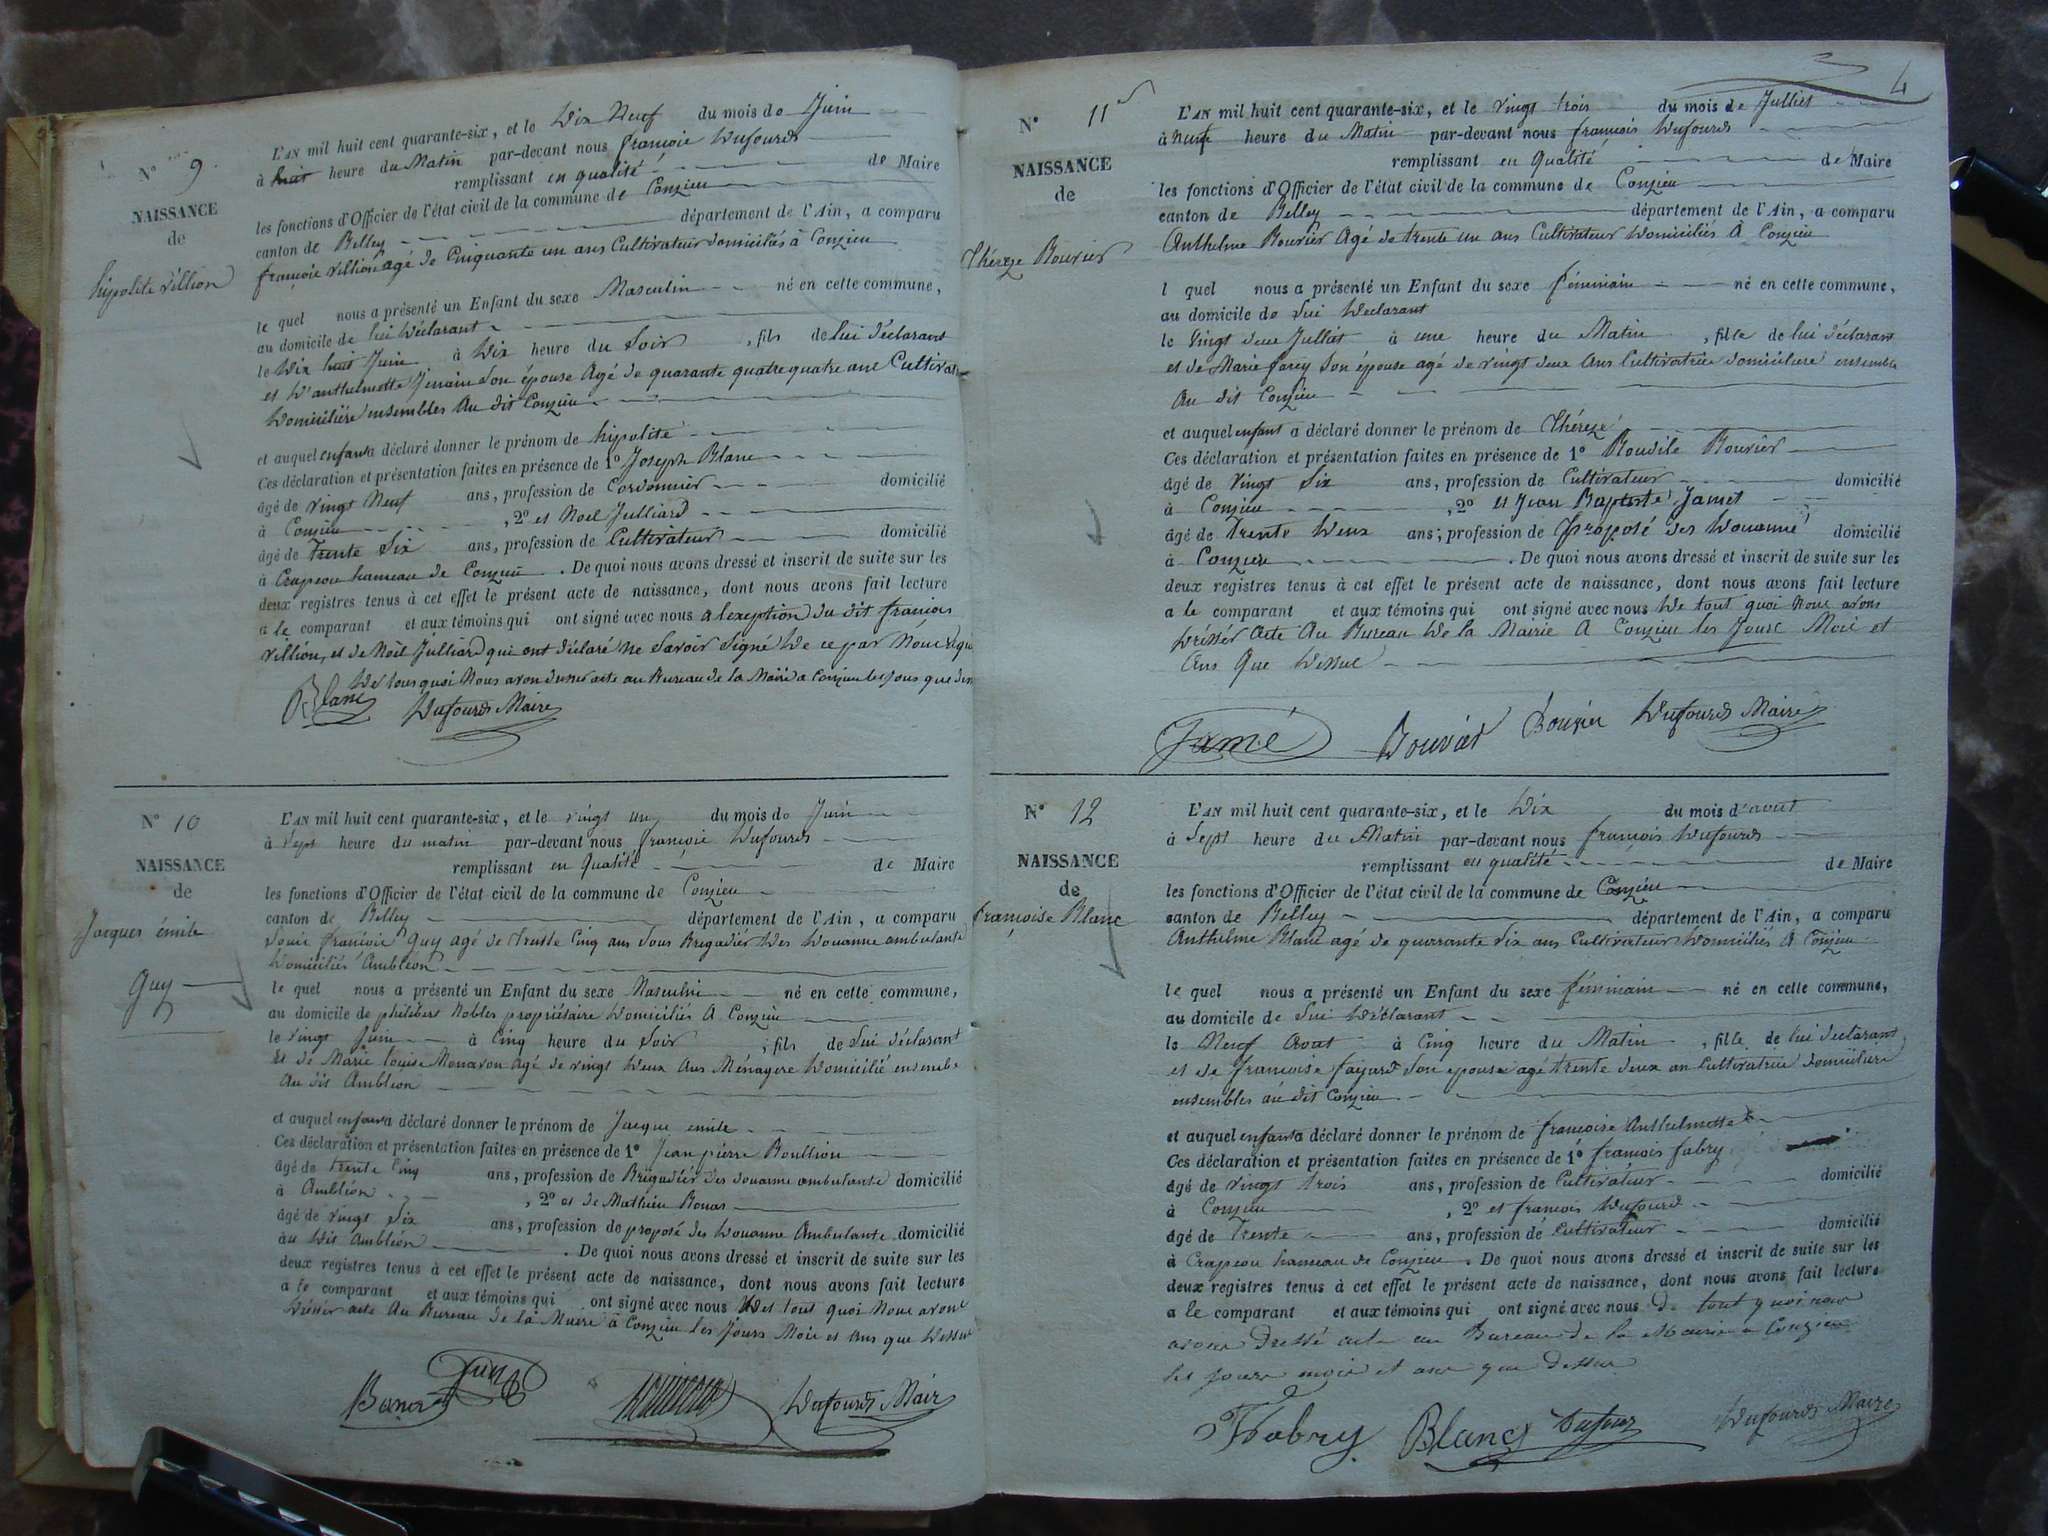 N° 9
NAISSANCE
de
hipolite villion
L'AN mil huit cent quarante-six, et le Dix Neuf du mois de Juin
à huit heure du Matin par-devant nous françois Dufourd
remplissant en qualité de Maire
les fonctions d'Officier de l'état civil de la commune de Conzieu
canton de Belley département de l'Ain, a comparu
françois villion agé de Cinquante un ans Cultivateur domiciliés à Conzieu
le quel nous a présenté un Enfant du sexe Masculin né en cette commune,
au domicile de lui Déclarant
le Dix huit Juin à Dix heure du Soir, fils de lui déclarant
et D'anthelmette son épouse Agé de quarante quatre ans
Domiciliére ensembles Au dit Conzieu
et auquel enfant a déclaré donner le prénom de hipolite
Ces déclaration et présentation faites en présence de 1° Joseph Blanc
âgé de vingt Neuf ans, profession de Cordonnier domicilié
à Conzieu, 2° et Noel Julliard
âgé de Trente Six ans, profession de Cultivateur domicilié
à Crapeou hameau de Conzieu. De quoi nous avons dressé et inscrit de suite sur les
deux registres tenus à cet effet le présent acte de naissance, dont nous avons fait lecture
a le comparant et aux témoins qui ont signé avec nous a lexeption du dit françois
villion, et de Noël Julliard qui ont déclaré ne Savoir Signé De ce par Nous
De tous quoi Nous avon dresser acte au Bureau de la Mairie a Conzieu les jours que
Blanc Dufourd Maire
N° 10
NAISSANCE
de
Jacques émile
Guy
L'AN mil huit cent quarante-six, et le vingt un du mois de Juin
à Sept heure du matin par-devant nous françois Dufourd
remplissant en Qualité de Maire
les fonctions d'Officier de l'état civil de la commune de Conzieu
canton de Belley département de l'Ain, a comparu
Louis françois Guy agé de Trente Cinq ans Sous Brigadiér Des Douanne ambulante
Domiciliés Ambléon
le quel nous a présenté un Enfant du sexe Masculin né en cette commune,
au domicile de philibert Nobles propriétaire Domiciliés A Conzieu
le vingt Juin à Cinq heure du Soir, fils de Lui déclarant
Et de Marie louise Monavon Agé de vingt Deux Ans Ménagere Domicilié ensemb.
Au dit Ambléon
et auquel enfant a déclaré donner le prénom de Jacque emile
Ces déclaration et présentation faites en présence de 1° Jean pierre Boullion
âgé de trente Cinq ans, profession de Brigadiér des douanne ambulante domicilié
à Ambléon, 2° et de Mathieu
âgé de vingt Six ans, profession de proposé des Douanne Ambulante domicilié
au Dit Ambléon. De quoi nous avons dressé et inscrit de suite sur les
deux registres tenus à cet effet le présent acte de naissance, dont nous avons fait lecture
a le comparant et aux témoins qui ont signé avec nous Det tout quoi Nous avons
Drésser acte Au Bureau De la Mairie à Conzieu les Jours Mois et Ans que Dessus
Dufourd Maire
4
N° 11
NAISSANCE
de
Théreze Bouvier
L'AN mil huit cent quarante-six, et le vingt trois du mois de Julliet
à neuf heure du Matin par-devant nous françois Dufourd
remplissant en Qualité de Maire
les fonctions d'Officier de l'état civil de la commune de Conzieu
canton de Belley département de l'Ain, a comparu
Anthelme Bouvier Agé de trente un ans Cultivateur Domiciliés A Conzieu
l quel nous a présenté un Enfant du sexe féminain né en cette commune,
au domicile de Lui Declarant
le Vingt deux Julliet à une heure du Matin, fille de lui déclarant
et de Marie farey Son épouse agé de vingt deux Ans Cultivatrice domiciliere ensemble
Au dit Conzieu
et auquel enfant a déclaré donner le prénom de Théreze
Ces déclaration et présentation faites en présence de 1° Bouvier
âgé de vingt Six ans, profession de Cultivateur domicilié
à Conzieu, 2° et Jean Baptiste Jamet
âgé de trente Deux ans; profession de proposé des Douanne domicilié
à Conzieu. De quoi nous avons dressé et inscrit de suite sur les
deux registres tenus à cet effet le présent acte de naissance, dont nous avons fait lecture
a le comparant et aux témoins qui ont signé avec nous De tout quoi Nous avons
Drésser Acte Au Bureau De la Mairie A Conzieu les Jours Mois et
Ans Que Dessus
Jamé Bouvier Bouvier Dufourd Maire
N° 12
NAISSANCE
de
françoise Blanc
L'AN mil huit cent quarante-six, et le Dix du mois d'aout
à Sept heure du Matin par-devant nous françois Dufourd
remplissant en qualité de Maire
les fonctions d'Officier de l'état civil de la commune de Conzieu
canton de Belley département de l'Ain, a comparu
Anthelme Blanc agé de quarante Six ans Cultivateur Domiciliés A Conzieu
le quel nous a présenté un Enfant du sexe féminain né en cette commune,
au domicile de Lui Déclarant
le Neuf Aout à Cinq heure du Matin, fille de lui déclarant
et de françoise fayard Son épouse agé trente deux an Cultivatrice domiciliére
ensembles au dit Conzieu
et auquel enfant a déclaré donner le prénom de françoise Anthelmette
Ces déclaration et présentation faites en présence de 1° françois fabry
âgé de vingt trois ans, profession de Cultivateur domicilié
à Conzieu, 2° et françois Dufourd
âgé de Trente ans, profession de Cultivateur domicilié
à Crapeou hameau de Conzieu. De quoi nous avons dressé et inscrit de suite sur les
deux registres tenus à cet effet le présent acte de naissance, dont nous avons fait lecture
a le comparant et aux témoins qui ont signé avec nous De tout quoi nous
avons dressé acte au Bureau de la Mairie a Conzieu
les jours mois et ans que dessus
Fabry Blanc Dufour Dufourd Maire